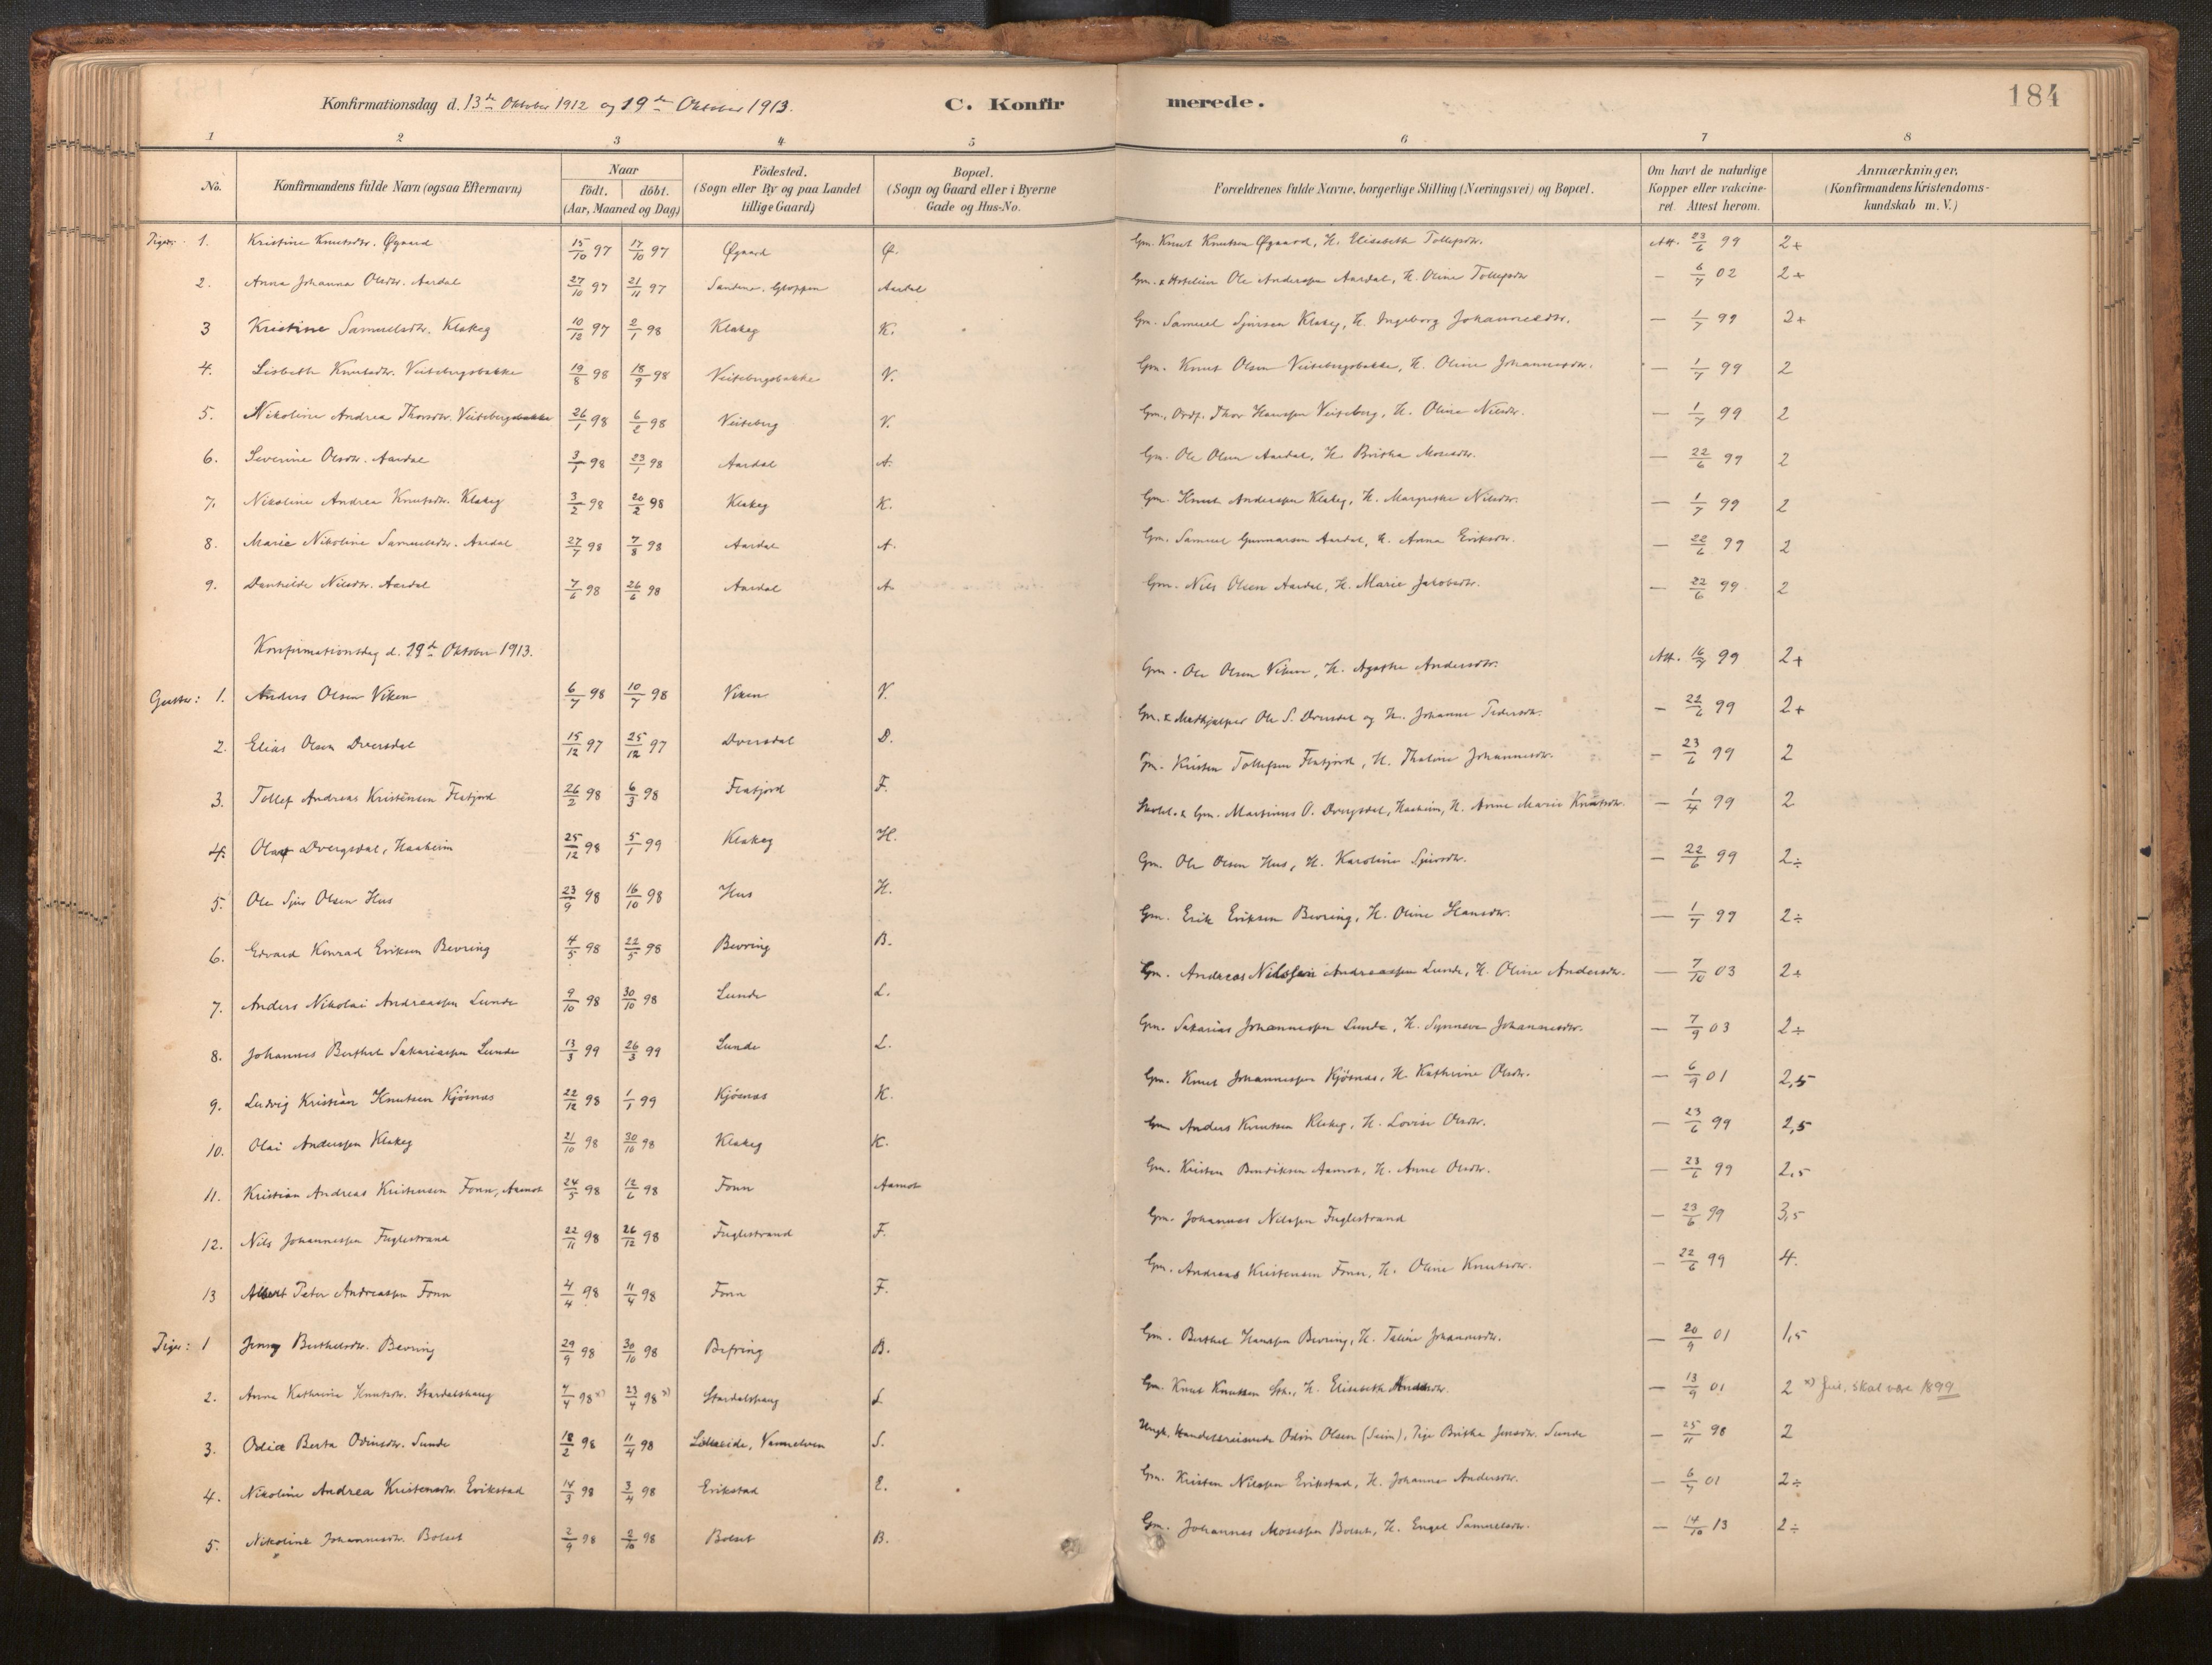 Konfirmationsdag d. 13de Oktober 1912 og 19de Oktober 1913. C. Konfirmerede. 184
1 2 3 4 5 6 7 8
No. Konfirmandens fulde Navn (ogsaa Efternavn) Naar födt. döbt. (Aar, Maaned og Dag) Födested. (Sogn eller By og paa Landet tillige Gaard) Bopæl. (Sogn og Gaard eller i Byerne Gade og Hus-No. Forældrenes fulde Navne, borgerlige Stilling (Næringsvei) og Bopæl. Om havt de naturlige Kopper eller vakcineret. Attest herom. Anmærkninger. (Konfirmandens Kristendomskundskab m. V.)
Piger: 1. Kristine Knutsdtr. Øgaard 15/10 97 17/10 97 Øgaard Ø. Gm. Knut Knutsen Øgaard, H. Elisabeth Tollefsdtr. Att. 23/6 99 2+
2. Anna Johanna Olsdtr. Aardal 27/10 97 21/11 97 Sandene, Gloppen Aardal Gm. & Hotelier Ole Anderssen Aardal, H. Oline Tollefsdtr — 6/7 02 2+
3 Kristine Samuelsdtr. Klakeg 10/12 97 2/1 98 Klakeg K. Gm. Samuel Sjursen Klakeg, H. Ingeborg Johannesdtr. — 1/7 99 2+
4. Lisbeth Knutsdtr. Veitebergsbakke 19/8 98 18/9 98 Veitebergsbakke V. Gm. Knut Olsen Veitebergsbakke, H. Oline Johannesdtr. — 1/7 99 2
5. Nikoline Andrea Thorsdtr. Veitebergsbakke 26/1 98 6/2 98 Veiteberg V. Gm., Ordf. Thor Hanssen Veiteberg, H. Oline Nilsdtr. — 1/7 99 2
6. Severine Olsdtr. Aardal 3/1 98 23/1 98 Aardal A. Gm. Ole Olsen Aardal, H. Britha Mosesdtr. — 22/6 99 2
7. Nikoline Andrea Knutsdtr. Klakeg 3/2 98 20/2 98 Klakeg K. Gm. Knut Anderssen Klakeg, H. Margrethe Nilsdtr. — 1/7 99 2
8. Marie Nikoline Samuelsdtr. Aardal 27/7 98 7/8 98 Aardal A. Gm. Samuel Gunnarson Aardal, H. Anna Eriksdtr. — 22/6 99 2
9. Danhilde Nilsdtr. Aardal 7/6 98 26/6 98 Aardal A. Gm. Nils Olsen Aardal, H. Marie Jakobsdtr. — 22/6 99 2
Konfirmationsdag d. 19de Oktober 1913.
Gutter: 1. Anders Olsen Viken 6/7 98 10/7 98 Viken V. Gm. Ole Olsen Viken, H. Agathe Andersdtr. Att. 16/7 99 2+
2. Elias Olsen Dversdal 15/12 97 25/12 97 Dversdal D. Gm. & Medhjælper Ole S. Dversdal og H. Johanne Pedersdtr. — 22/6 99 2+
3. Tollef Andreas Kristensen Flatjord 26/2 98 6/3 98 Flatjord F. Gm. Kristen Tollefsen Flatjord, H. Thaline Johannesdtr. — 23/6 99 2
4. Olaf Dvergsdal, Haaheim 25/12 98 5/1 99 Klakeg H. Skolel. & Gm. Martinus O. Dvergsdal, Haaheim, H. Anne Marie Knutsdtr. — 1/4 99 2
5. Ole Sjur Olsen Hus 23/9 98 16/10 98 Hus H. Gm. Ole Olsen Hus, H. Karoline Sjursdtr. — 22/6 99 2÷
6. Edvard Konrad Eriksen Bevring 4/5 98 22/5 98 Bevring B. Gm. Erik Eriksen Bevring, H. Oline Hansdtr. — 1/7 99 2÷
7. Anders Nikolai Andreassen Lunde 9/10 98 30/10 98 Lunde L. Gm. Andreas Nilssen Andreassen Lunde, H. Oline Andersdtr. — 7/10 03 2÷
8. Johannes Berthel Sakariassen Lunde 13/3 99 26/3 99 Lunde L. Gm. Sakarias Johannessen Lunde, H. Synneva Johannesdtr. — 7/9 03 2÷
9. Ludvig Kristian Knutsen Kjösnæs 22/12 98 1/1 99 Kjösnæs K. Gm. Knut Johannessen Kjösnæs, H. Kathrine Olsdtr. — 6/9 01 2,5
10. Olai Anderssen Klakeg 21/10 98 30/10 98 Klakeg K. Gm Anders Knutsen Klakeg, H. Lovise Olsdtr. — 23/6 99 2,5
11. Kristian Andreas Kristensen Fonn, Aamot 24/5 98 12/6 98 Fonn Aamot Gm. Kristen Bendiksen Aamot, H. Anne Olsdtr. — 23/6 99 2,5
12. Nils Johannessen Fuglestrand 22/11 98 26/12 98 Fuglestrand F. Gm. Johannes Nilssen Fuglestrand — 23/6 99 3,5
13 Albert Peter Andreassen Fonn 4/4 98 11/4 98 Fonn F. Gm. Andreas Kristensen Fonn, H. Oline Knutsdtr. — 22/6 99 4.
Piger: 1 Jenny Berthelsdtr. Bevring 29/9 98 30/10 98 Befring B. Gm. Berthel Hanssen Bevring, H. Taline Johannesdtr. — 20/9 01 1,5
2. Anna Kathrina Knutsdtr. Stardalshaug 7/4 98 x) 23/4 98 x) Stardalshaug S. Gm. Knut Knutsen Sth., H. Elisabeth — 13/9 01 2 x) skal være 1899
3. Odia Berta Odinsdtr. Sunde 18/2 98 11/4 98 Vannelven S. Ungk. Handelsreisende Odin Olsen (Seim), Pige Britha Jensdtr. Sunde — 25/11 98 2
4. Nikoline Andrea Kristensdtr. Erikstad 14/3 98 3/4 98 Erikstad E. Gm. Kristen Nilssen Erikstad, H. Johanne Andersdtr. — 6/7 01 2÷
5. Nikoline Johannesdtr. Bolset 2/9 98 2/10 98 Bolset B. Gm. Johannes Mosessen Bolset, H. Engel Samuelsdtr. — 14/10 13 2÷